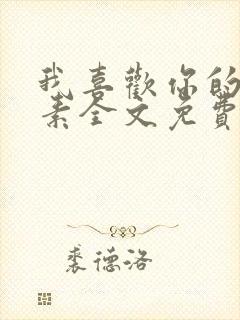 我喜歡你的
素全文免費
裘德洛